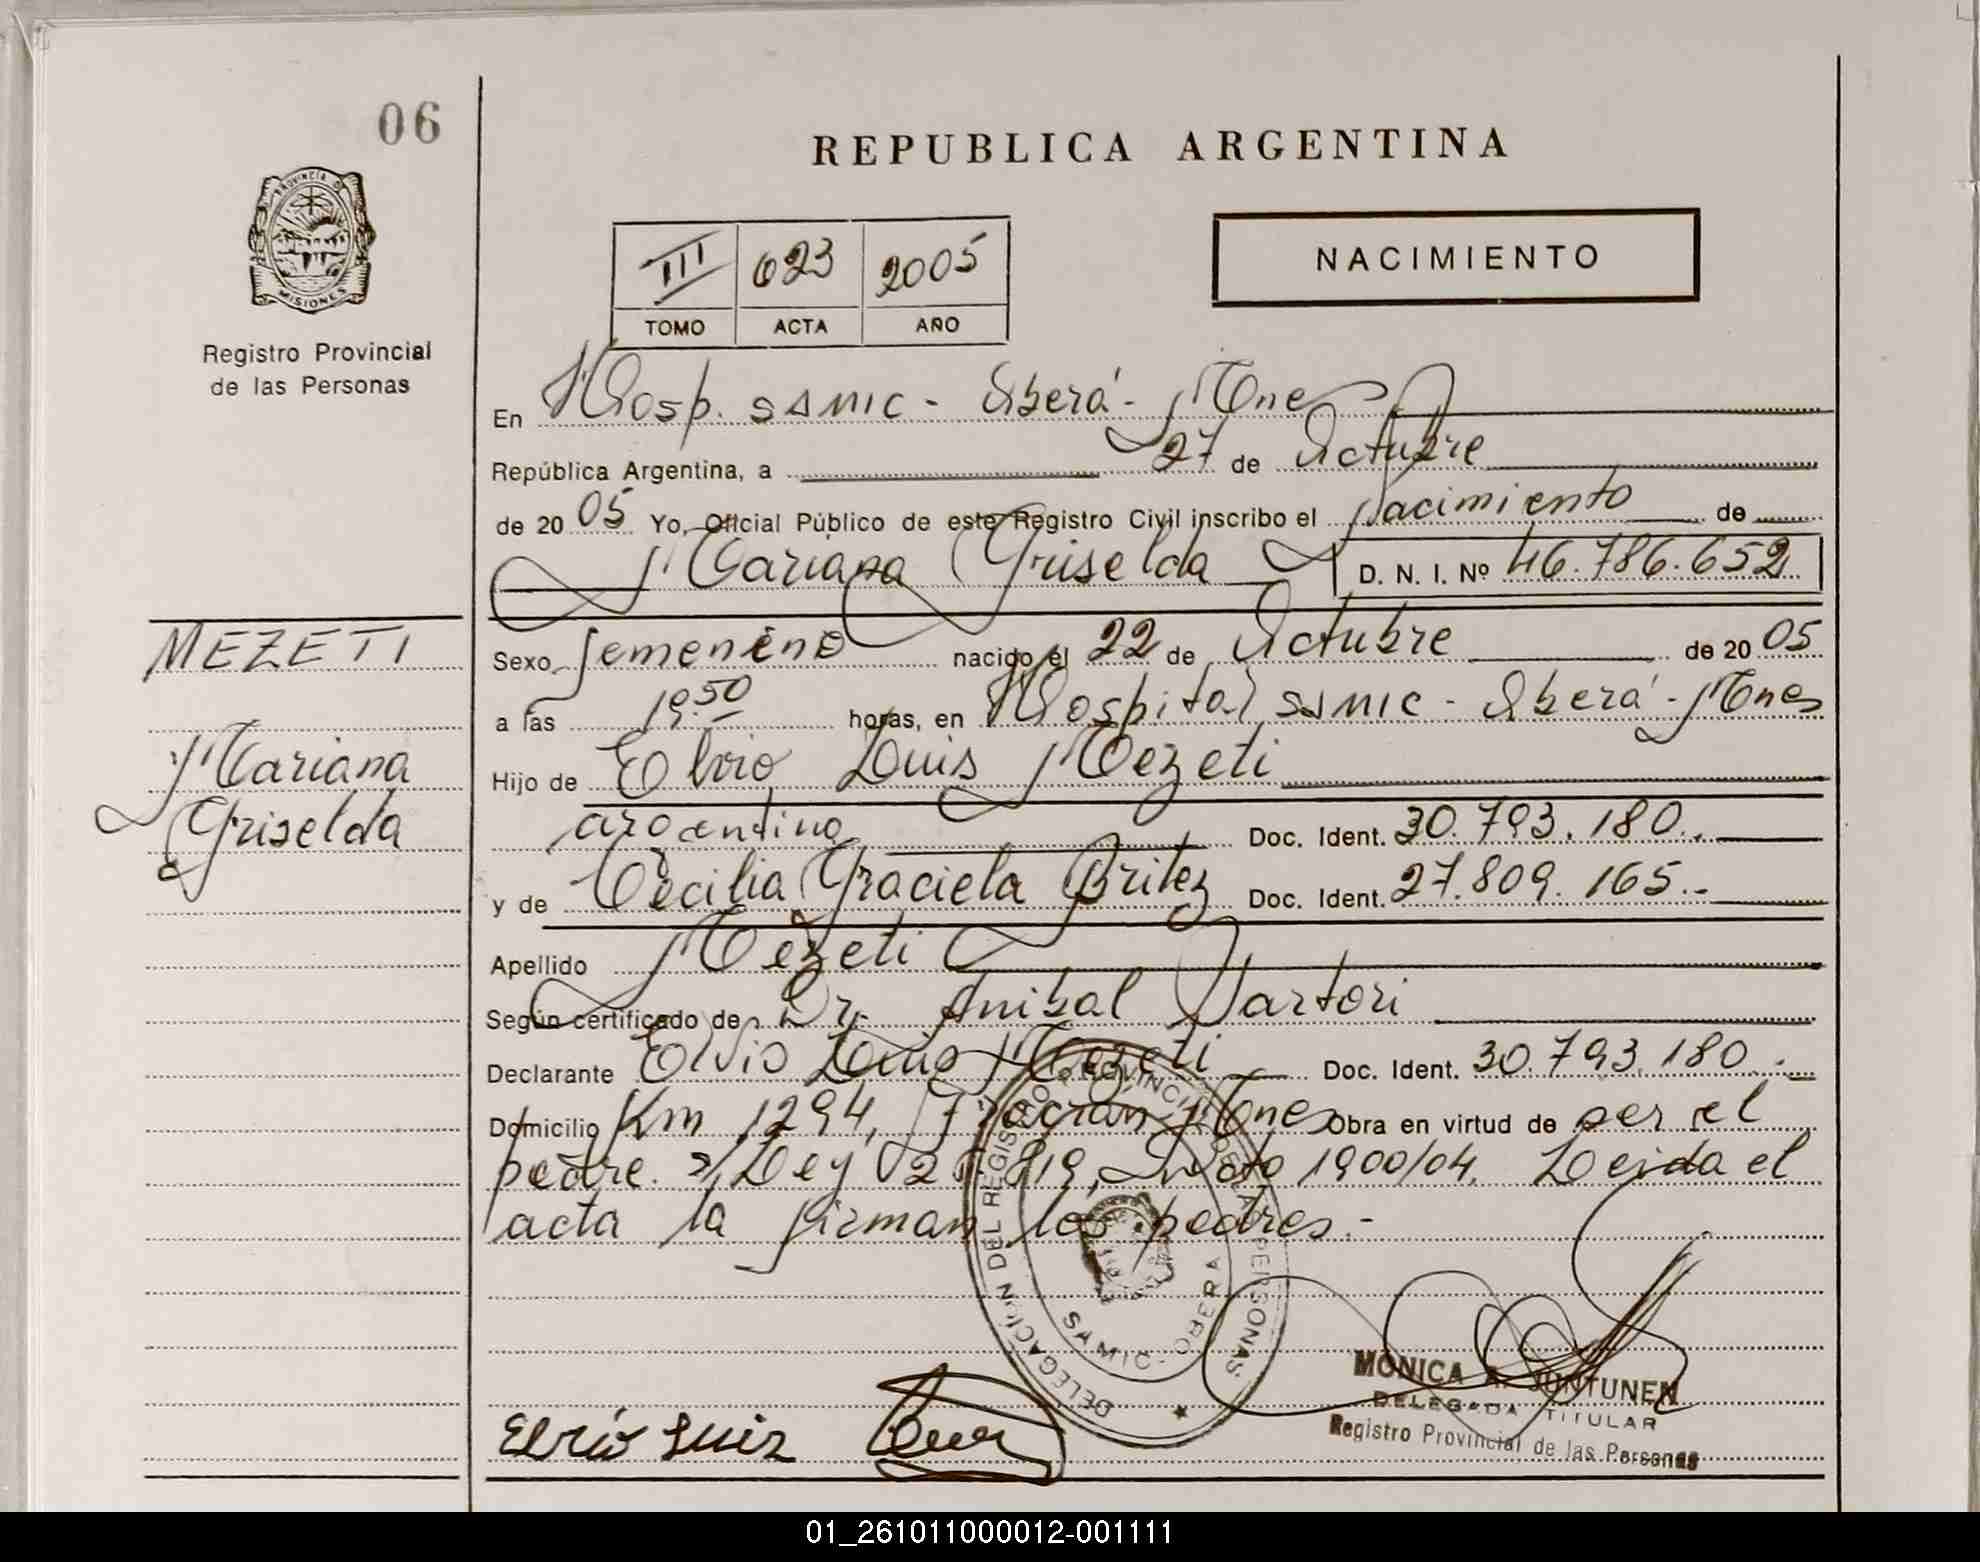 06
REPUBLICA ARGENTINA
PROVINCIA DE
MISIONES
Registro Provincial
de las Personas
III 023 2005
TOMO ACTA AÑO
NACIMIENTO
En Hosp. SAMIC - Oberá - Mnes
República Argentina, a 27 de Octubre
de 20 05 Yo, Oficial Público de este Registro Civil inscribo el Nacimiento de
Mariana Griselda D. N. I. Nº 46.786.652
MEZETI
Mariana
Griselda
Sexo femenino nacido el 22 de Octubre de 20 05
a las 19.50 horas, en Hospital SAMIC - Oberá - Mnes
Hijo de Elvio Luis Mezeti
argentino Doc. Ident. 30.793.180.-
y de Cecilia Graciela Britez Doc. Ident. 27.809.165.-
Apellido Mezeti
Según certificado de Dr. Anibal Sartori
Declarante Elvio Luis Mezeti Doc. Ident. 30.793.180.-
Domicilio Km 1294, Mnes Obra en virtud de ser el
padre. s/Ley 819, 1900/04. Leida el
acta la firman los padres.-
DELEGACIÓN DEL REGISTRO PROVINCIAL DE LAS PERSONAS
SAMIC - OBERA
Elvio Luis
MONICA A. JUNTUNEN
DELEGADA TITULAR
Registro Provincial de las Personas
01_261011000012-001111